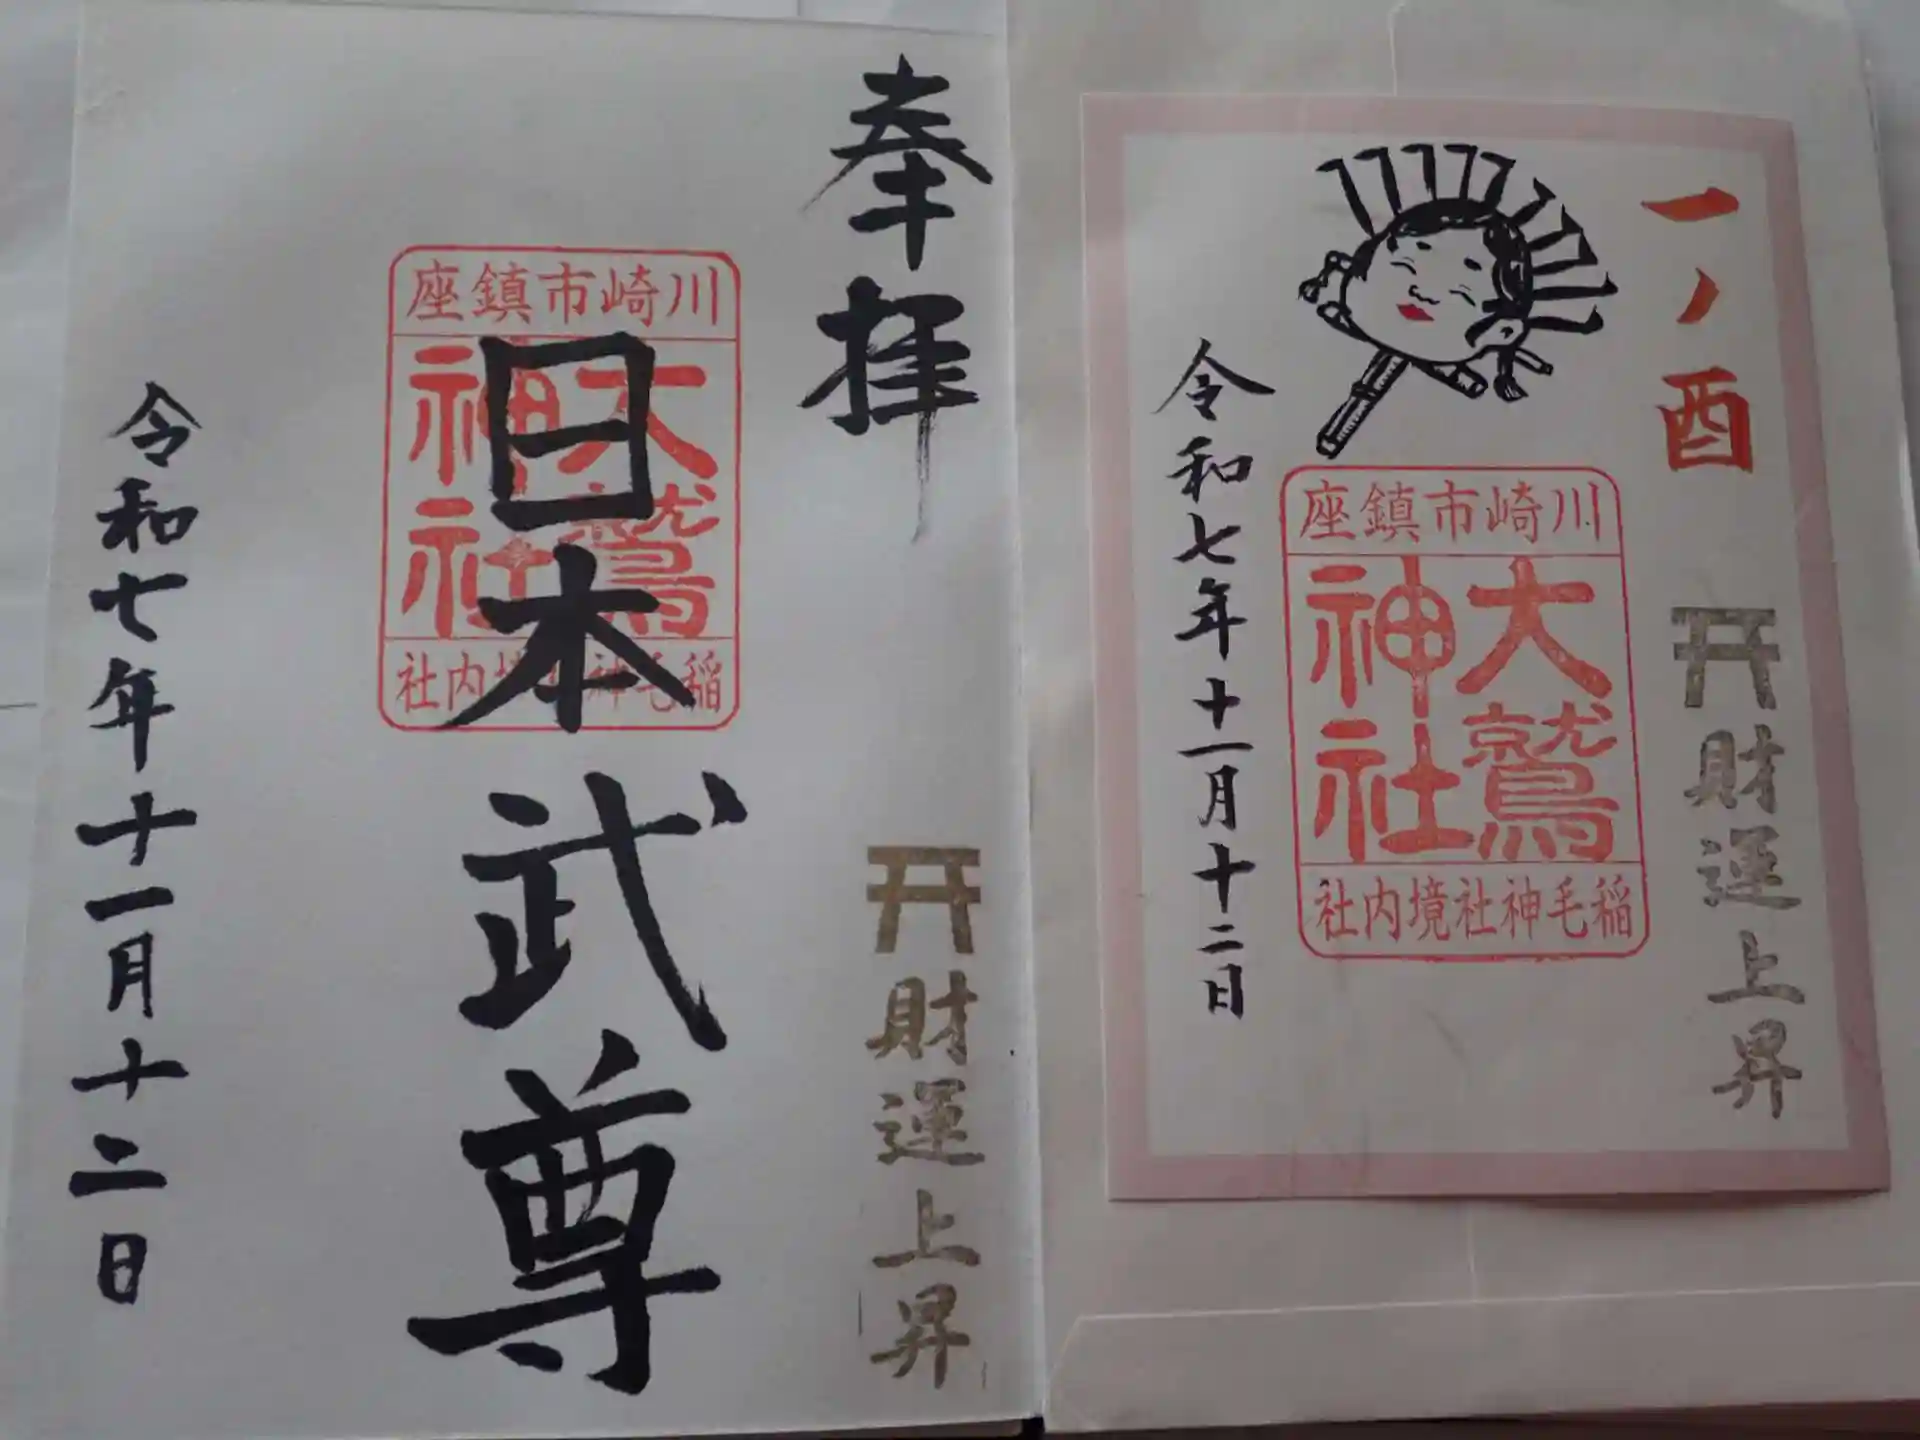 奉拝
川崎市鎮座
大鷲神社
稲毛神社境内社
日本武尊
財運上昇
令和七年十一月十二日
一ノ酉
財運上昇
川崎市鎮座
大鷲神社
稲毛神社境内社
令和七年十一月十二日